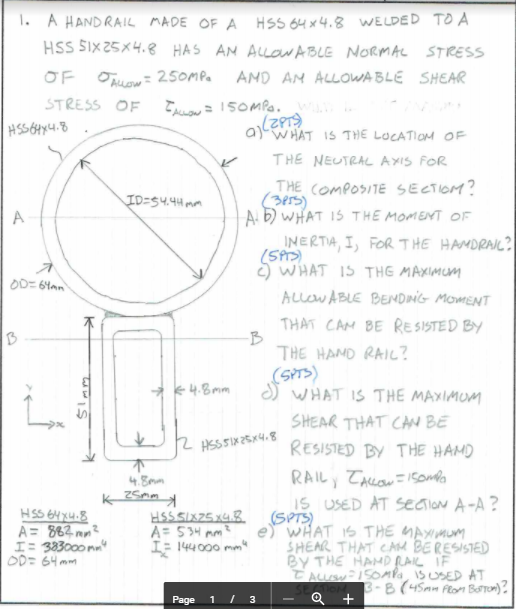 1. A HANDRAIL MADE OF A HSS 64x4.8 WELDED TO A
HSS 51x25x4.8 HAS AN ALLOWABLE NORMAL STRESS
OF σAllow = 250MPa AND AN ALLOWABLE SHEAR
STRESS OF τAllow = 150MPa.
HSS64x4.8
(2PTS)
a) WHAT IS THE LOCATION OF
THE NEUTRAL AXIS FOR
THE COMPOSITE SECTION?
ID=54.44mm
(3PTS)
A
A
b) WHAT IS THE MOMENT OF
INERTIA, I, FOR THE HANDRAIL?
(5PTS)
c) WHAT IS THE MAXIMUM
OD=64mm
ALLOWABLE BENDING MOMENT
THAT CAN BE RESISTED BY
B
B
THE HAND RAIL?
(5PTS)
51mm
4.8mm
d) WHAT IS THE MAXIMUM
SHEAR THAT CAN BE
Y
x
HSS51x25x4.8
RESISTED BY THE HAND
RAIL, τAllow=150MPa
4.8mm
25mm
IS USED AT SECTION A-A?
HSS 64x4.8
A= 882mm²
I= 383000mm⁴
OD= 64mm
HSS 51x25x4.8
A= 534 mm²
Ix= 144000mm⁴
(5PTS)
e) WHAT IS THE MAXIMUM
SHEAR THAT CAN BE RESISTED
BY THE HANDRAIL IF
τAllow=150MPa IS USED AT
B-B (45mm FROM BOTTOM)?
Page 1 / 3